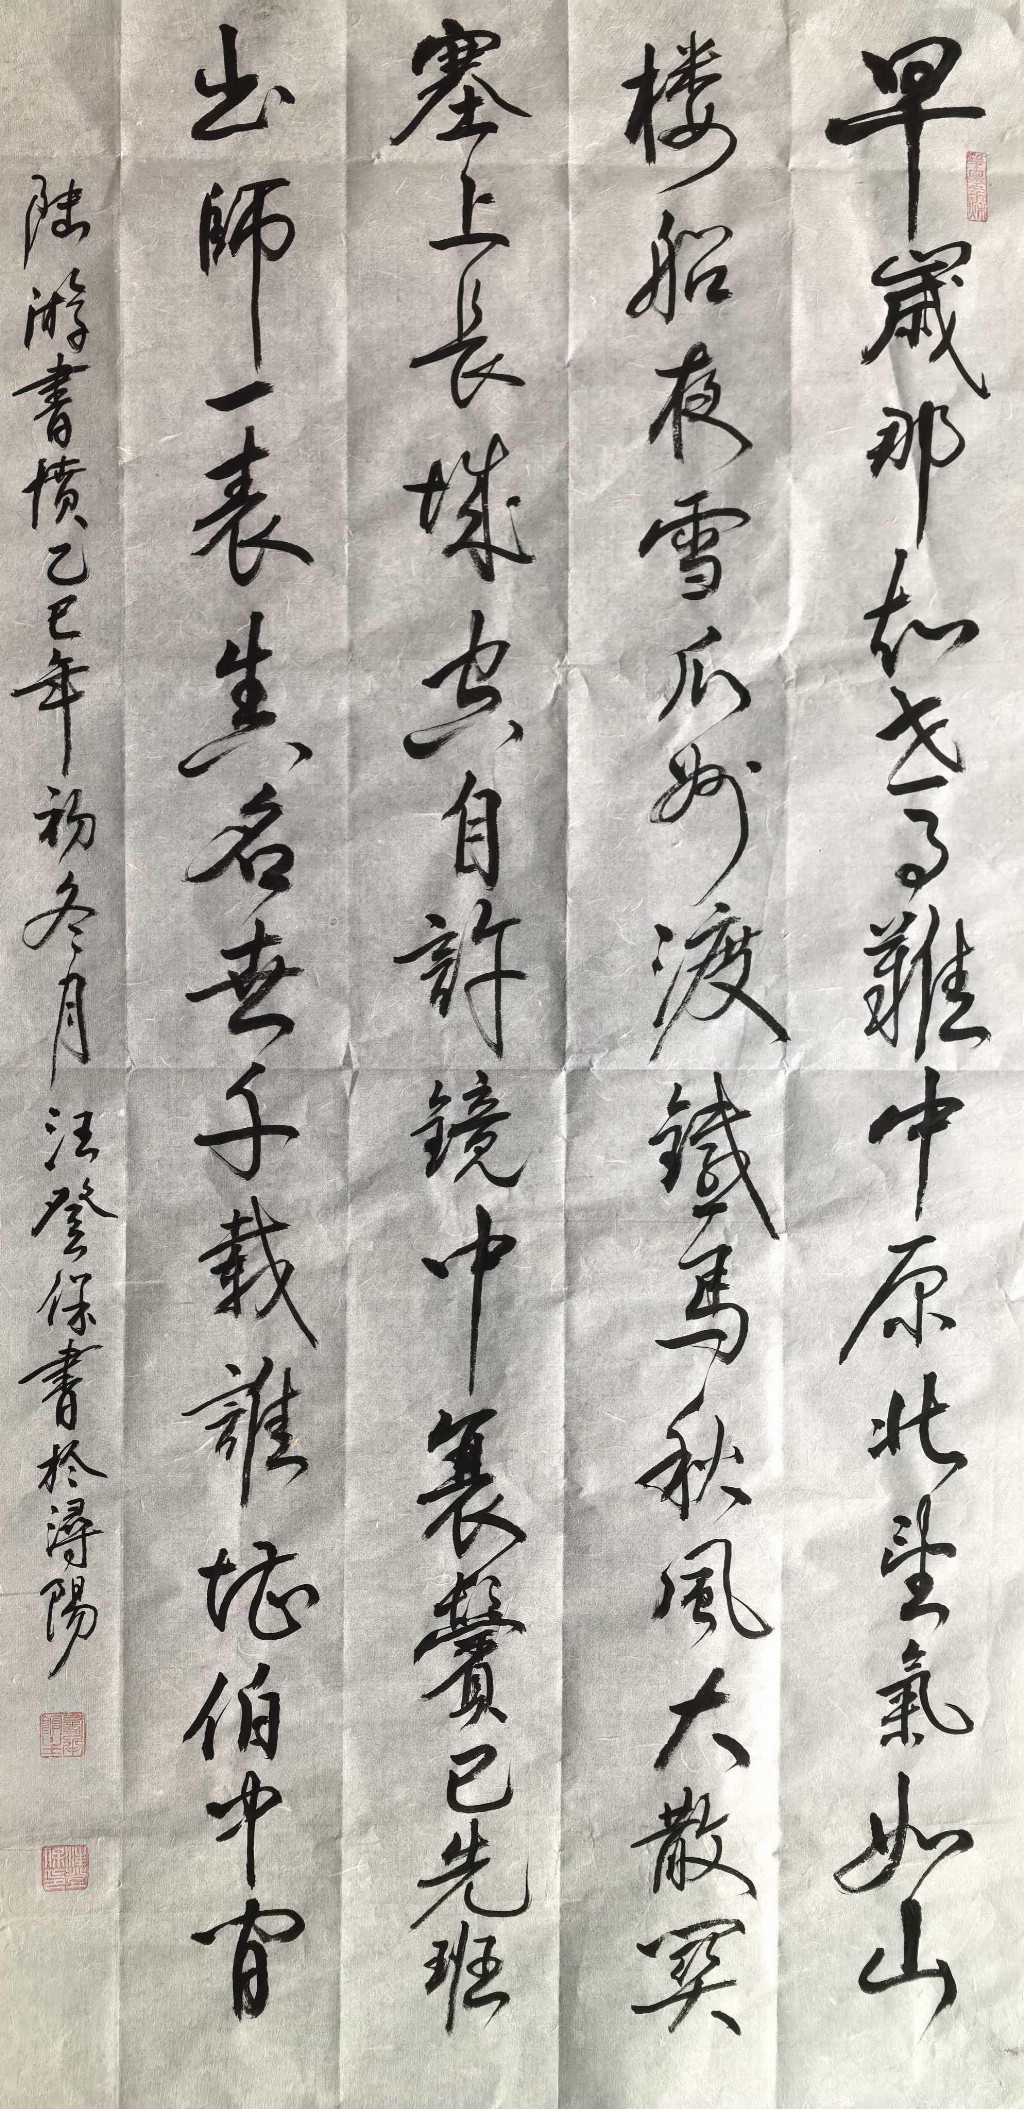 早歲那知世事難中原北望氣如山
楼船夜雪瓜州渡鐵馬秋風大散関
塞上長城空自許鏡中衰鬢已先班
出師一表真名世千載誰堪伯中間
陸游書憤乙巳年初冬月汪登保書於潯陽